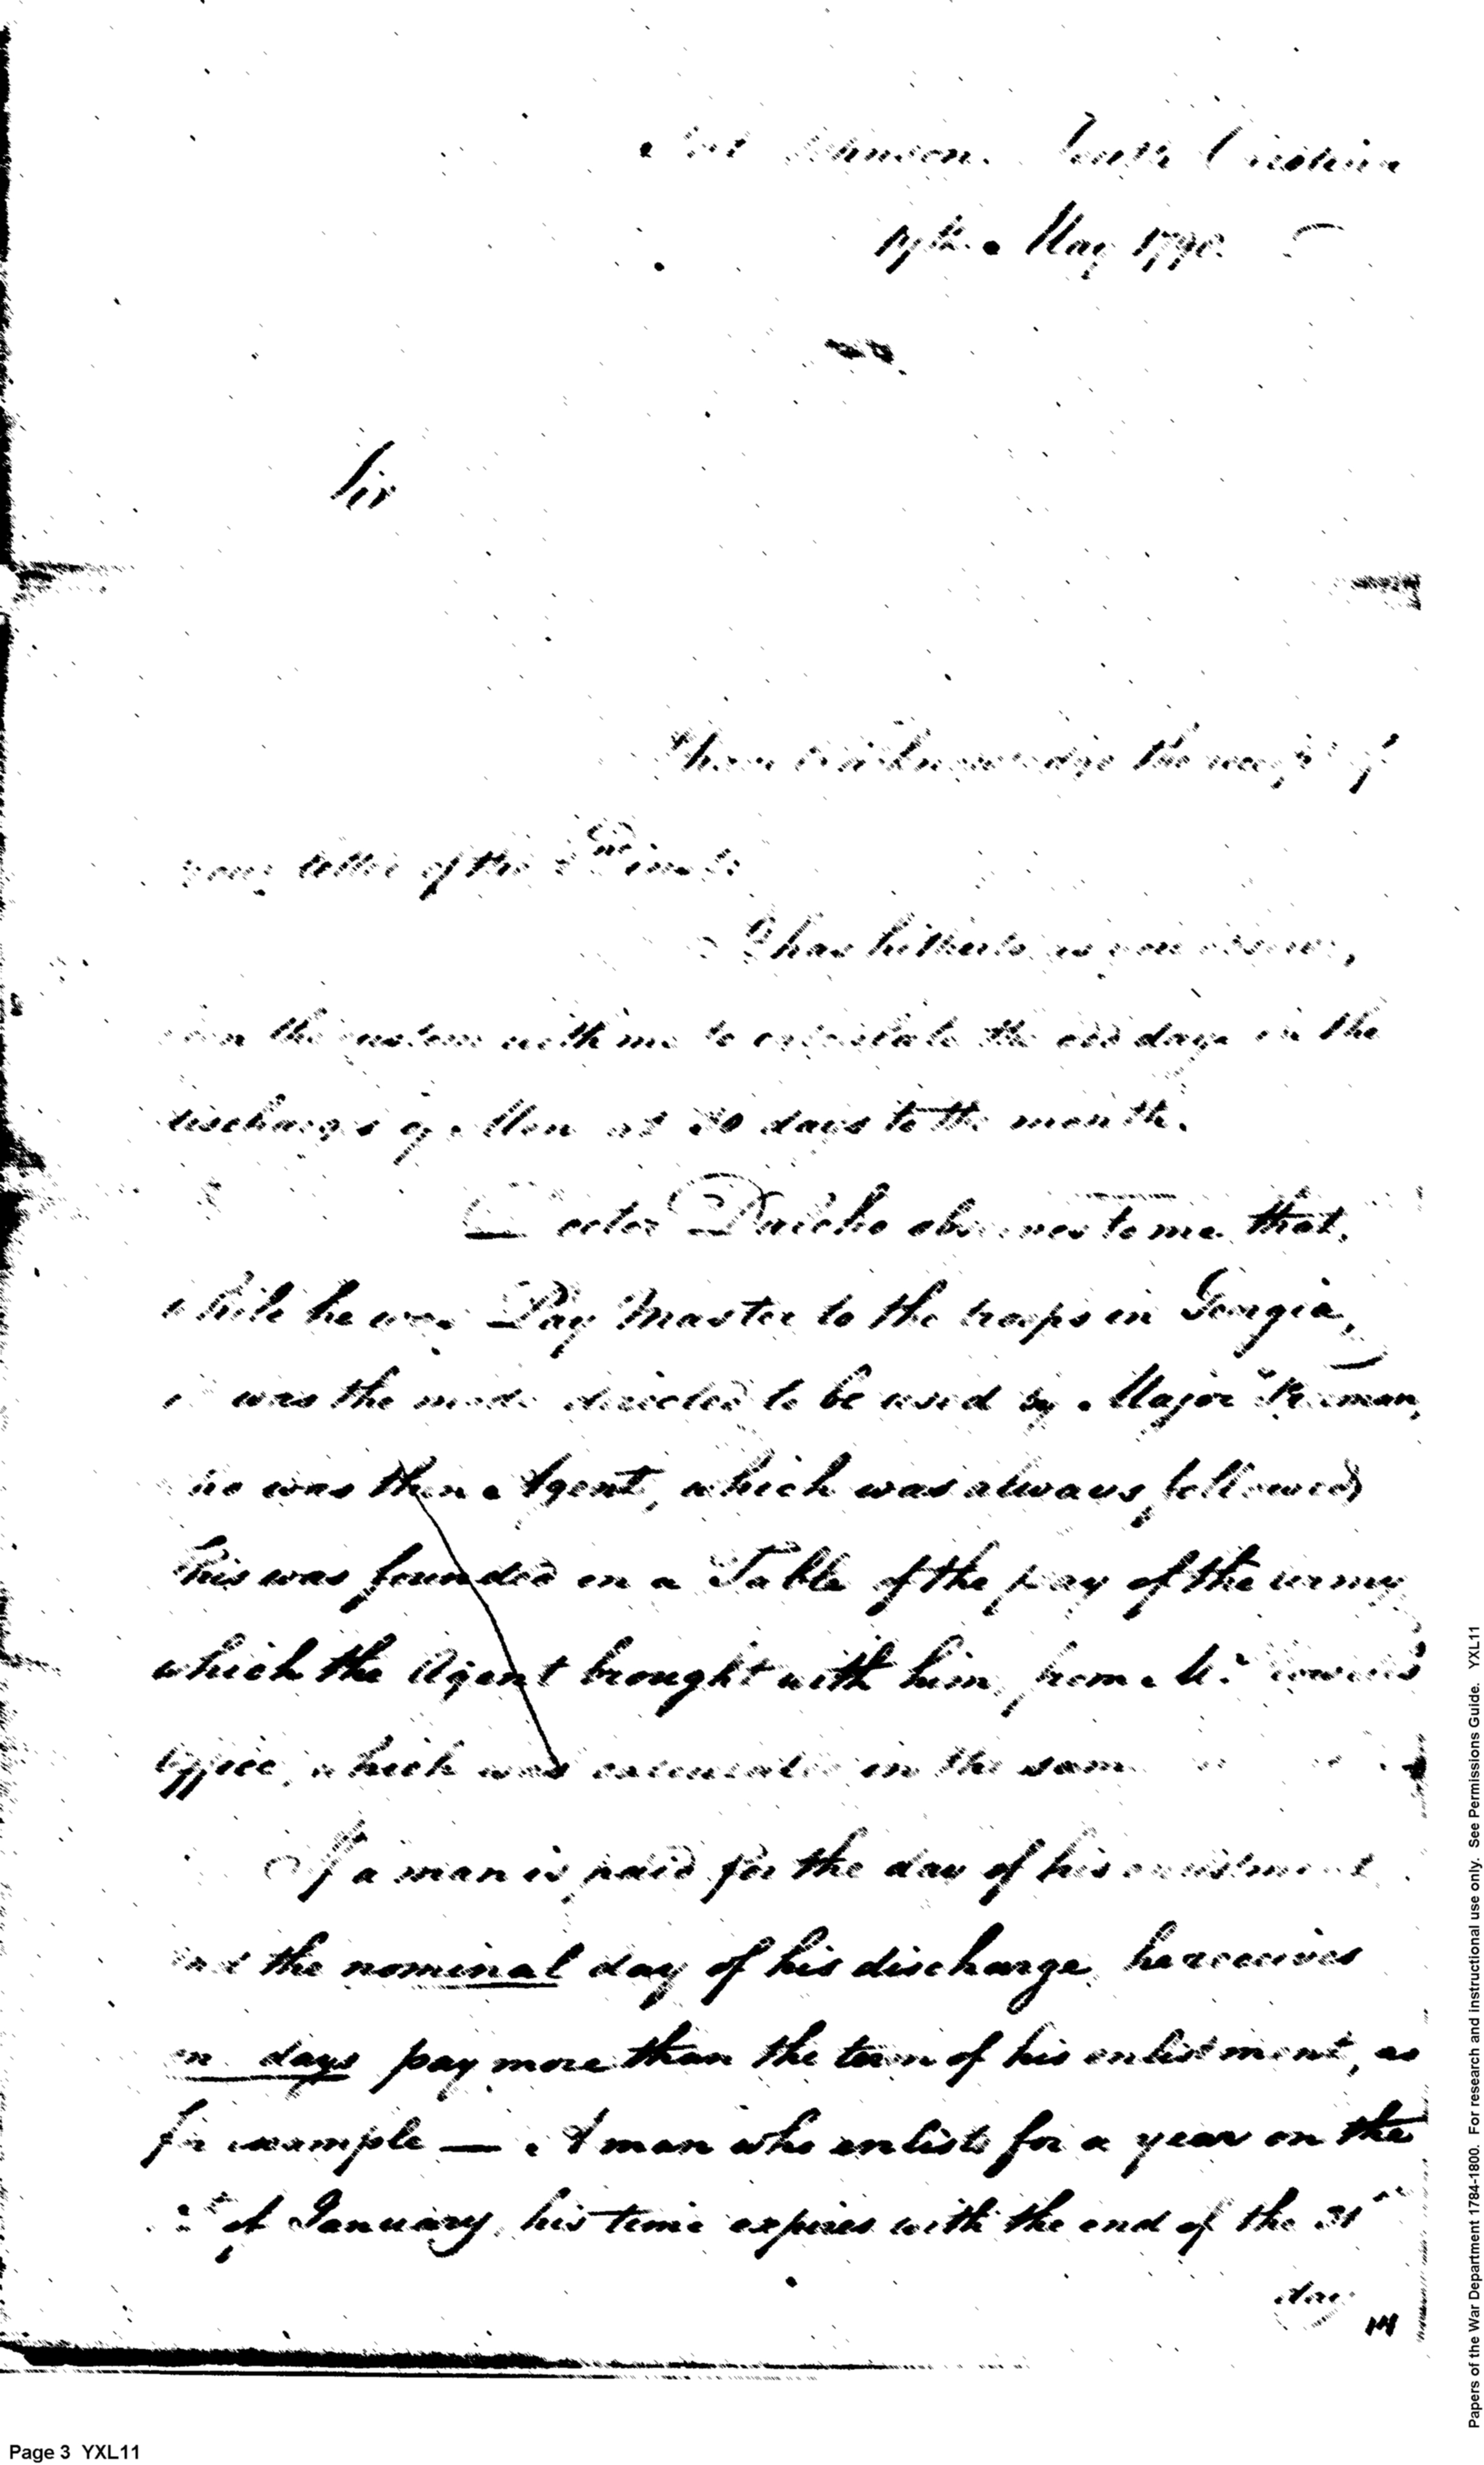 Fort Johnson. South Carolina
May
Sir
I have to acknowledge the receipt of
your letter of the inst.
It has hitherto, as you observe,
been the custom with me to calculate the odd days in the
discharges of Men at 30 days to the month.
Doctor Dalcho observes to me that,
while he was Pay Master to the troops in Georgia,
it was the mode directed to be used by Major Freeman,
who was then Agent, which was always followed
This was founded on a Table of the pay of the army
which the Agent brought with him, from Mr.
office, which was calculated in the same
If a man is paid for the day of his enlistment
and the nominal day of his discharge, he receives
days pay more than the term of his enlistment, as
for example — A man who enlists for a year on the
of January, his time expires with the end of the 31st
day
Page 3 YXL11
Papers of the War Department 1784-1800. For research and instructional use only. See Permissions Guide. YXL11